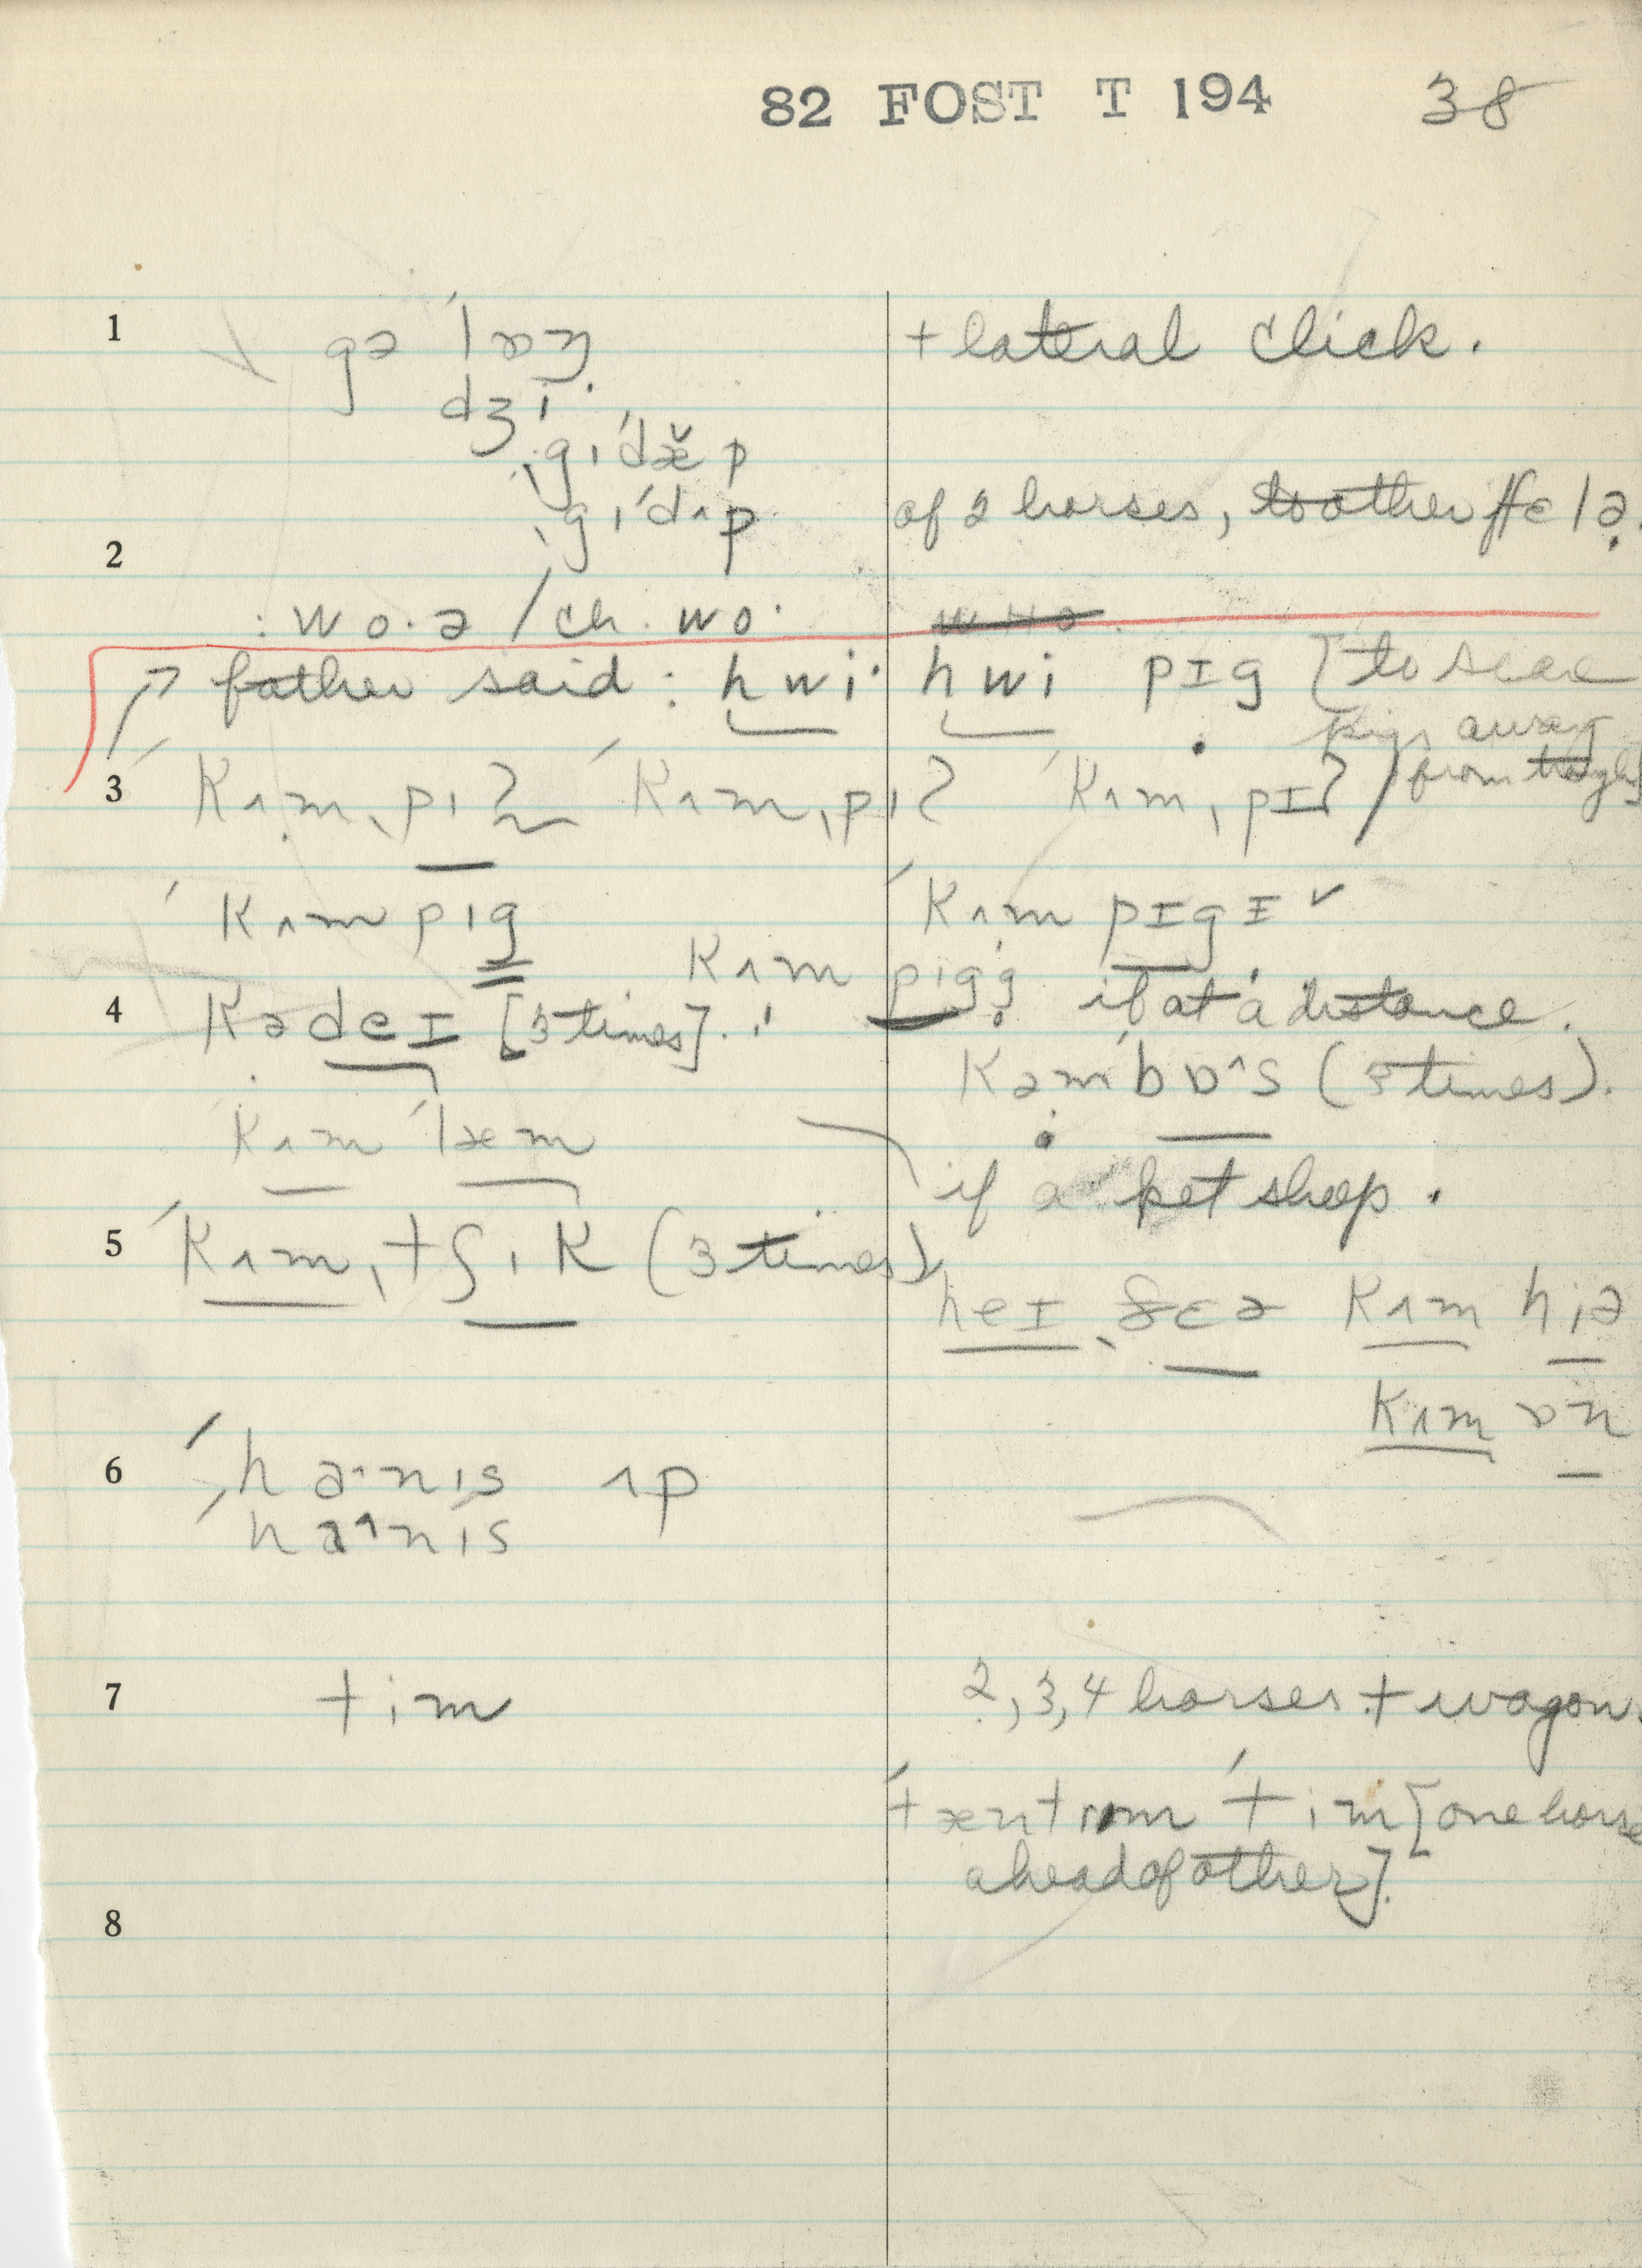 82 FOST T 194 38
1 gə ˈlɒŋ + lateral click.
dʒi·
ˌgiˈdæ̌p
ˌgɪˈdʌp of 2 horses, to other fɛlə.
2
: wo·ə / ch. wo·
father said: hwi· hwi pɪg [to scare
pigs away
from trough]
3 ˈkʌm ˌpɪg ˈkʌm ˌpɪg ˈkʌm ˌpɪg /
ˈkʌm pɪg ˈkʌm pɪgɪ ✓
kʌm pɪg: if at a distance.
4 kədeɪ [3 times].
kəmˈbɒ^s (3 times).
kʌm ˈlæm if a pet sheep.
5 ˈkʌm ˌtʃɪk (3 times)
heɪ ˌðɛə kʌm hiə
kʌm ɒn
6 ˈha·nɪs ʌp
ˈha^nɪs
7 tim 2, 3, 4 horses + wagon.
ˈtæntrəm ˈtim [one horse
ahead of other].
8